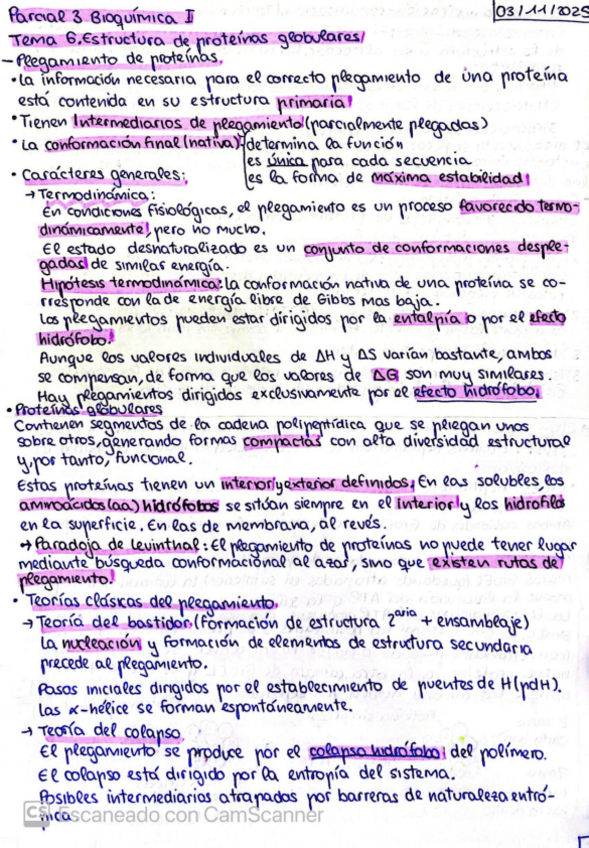 Parcial 3 Bioquímica I
03/11/2025
Tema 6. Estructura de proteínas globulares
- Plegamiento de proteínas.
• La información necesaria para el correcto plegamiento de una proteína
está contenida en su estructura primaria
• Tienen Intermediarios de plegamiento (parcialmente plegadas)
• La conformación final (nativa) { determina la función
es única para cada secuencia
es la forma de máxima estabilidad
• Carácteres generales:
→ Termodinámica:
En condiciones fisiológicas, el plegamiento es un proceso favorecido termo-
dinámicamente, pero no mucho.
El estado desnaturalizado es un conjunto de conformaciones desple-
gadas de similar energía.
Hipótesis termodinámica: la conformación nativa de una proteína se co-
rresponde con la de energía libre de Gibbs mas baja.
Los plegamientos pueden estar dirigidos por la entalpía o por el efecto
hidrófobo.
Aunque los valores individuales de ΔH y ΔS varían bastante, ambos
se compensan, de forma que los valores de ΔG son muy similares.
Hay plegamientos dirigidos exclusivamente por el efecto hidrófobo.
• Proteínas globulares
Contienen segmentos de la cadena polipeptídica que se pliegan unos
sobre otros, generando formas compactas con alta diversidad estructural
y, por tanto, funcional.
Estas proteínas tienen un interior y exterior definidos. En las solubles, los
aminoácidos (aa) hidrófobos se sitúan siempre en el interior y los hidrófilos
en la superficie. En las de membrana, al revés.
→ Paradoja de Levinthal: El plegamiento de proteínas no puede tener lugar
mediante búsqueda conformacional al azar, sino que existen rutas de
plegamiento.
• Teorías clásicas del plegamiento.
→ Teoría del bastidor (formación de estructura 2aria + ensamblaje)
La nucleación y formación de elementos de estructura secundaria
precede al plegamiento.
Pasos iniciales dirigidos por el establecimiento de puentes de H (pdH).
Las α-hélice se forman espontáneamente.
→ Teoría del colapso
El plegamiento se produce por el colapso hidrófobo del polímero.
El colapso está dirigido por la entropía del sistema.
Posibles intermediarios atrapados por barreras de naturaleza entró-
pica
CS Escaneado con CamScanner